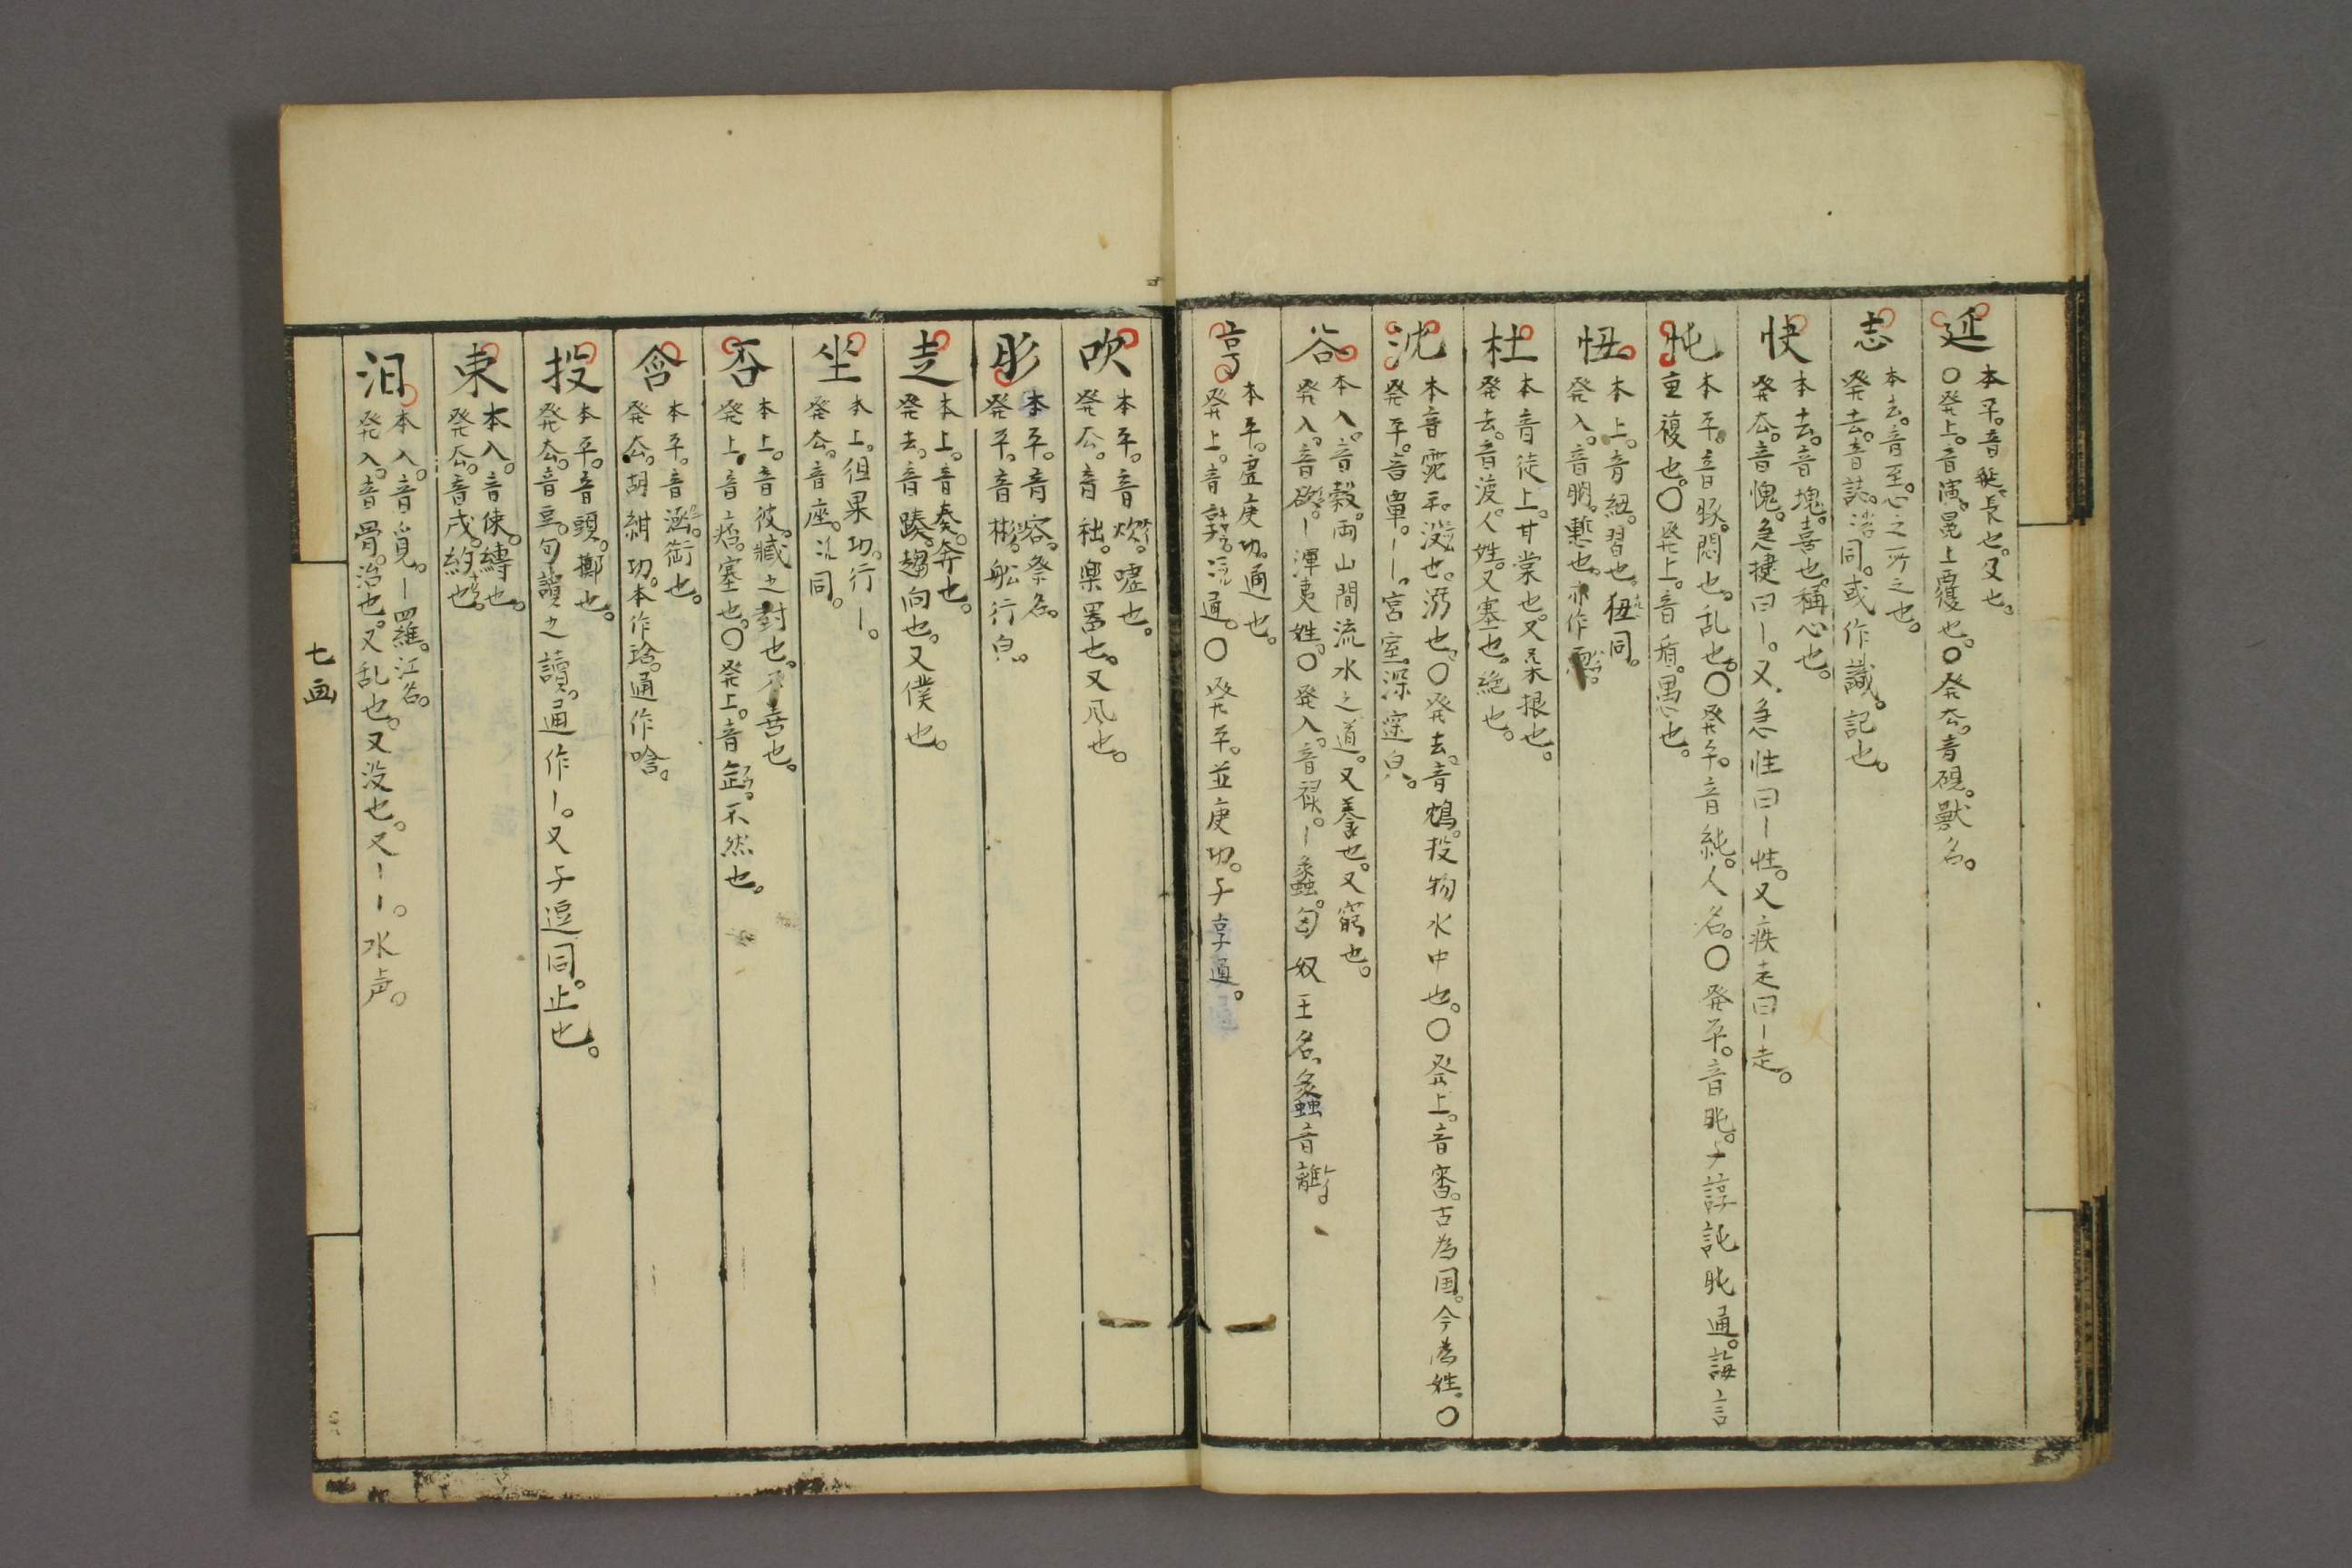 延
本平。音𨒂。長也。又也。
〇発上。音演。冕上覆也。〇発去。音硯。獸名。
志
本去。音至。心之所之也。
発去。音誌。同。或作識。記也。
快
本去。音塊。喜也。稱心也。
発去。音愧。急捷曰ー。又急性曰ー性。又疾走曰ー走。
忳
本平。音豚。悶也。乱也。〇発平。音純。人名。〇発平。音肫。与諄訰肫通。誨言
重複也。〇発上。音盾。愚也。
忸
本上。音紐。習也。狃同。
発入。音朒。慙也。亦作
杜
本音徒上。甘棠也。又桑根也。
発去。音渡。人姓。又塞也。絶也。
沈
本音霃平。没也。溺也。〇発去。音鴆。投物水中也。〇発上。音審。古為国。今為姓。〇
発平。音單。ー。宮室深邃皃。
谷
本入。音穀。両山間流水之道。又養也。又窮也。
発入。音欲。ー渾夷姓。〇発入。音禄。ー蠡。匈奴王名。蠡音離。
亨
本平。虚庚切。通也。
発上。音。通。〇発平。並庚切。与享通。
吹
本平。音炊。嘘也。
発去。音。樂器也。又風也。
肜
本平。音容。祭名。
発平。音彬。舩行皃。
走
本上。音奏。奔也。
発去。音蹂。趨向也。又僕也。
坐
本上。徂果切。行ー。
発去。音座。同。
否
本上。音彼。臧之對也。不善也。
発上。音痞。塞也。〇発上。音缶。不然也。
含
本平。音涵。銜也。
発去。胡紺切。本作琀。通作唅。
投
本平。音頭。擲也。
発去。音豆。句讀之讀。通作ー。又与逗同。止也。
束
本入。音倲。縛也。
発去。音戍。約也。
汨
本入。音覓。ー羅。江名。
発入。音骨。治也。又乱也。又没也。又ーー。水声。
七画
一八一